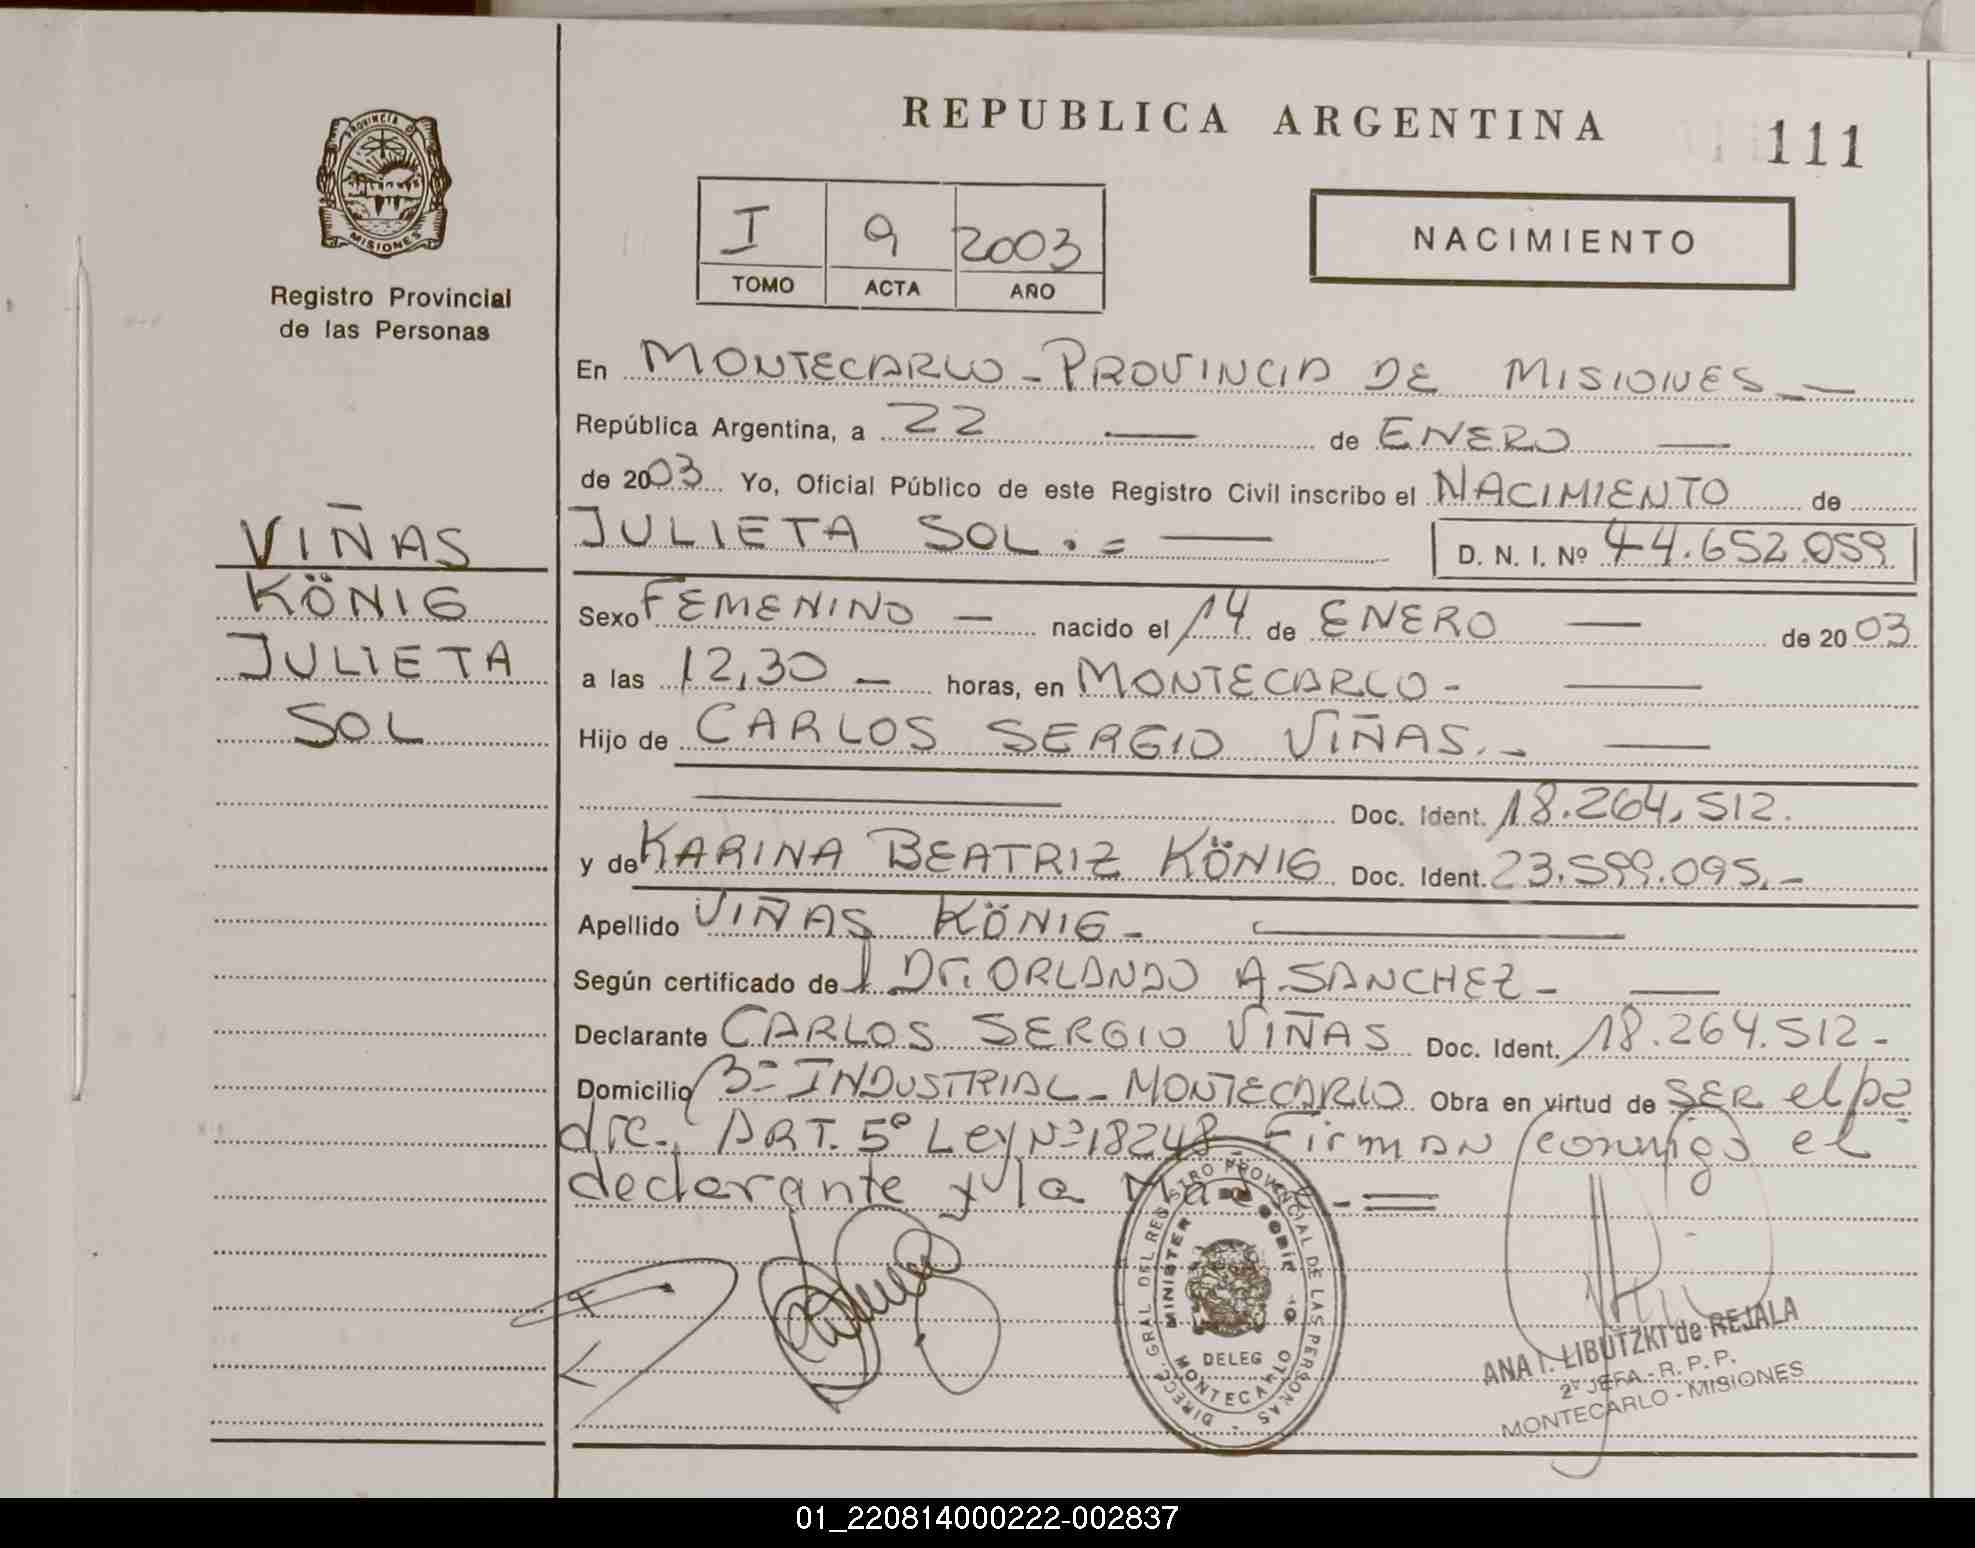 REPUBLICA ARGENTINA
111
PROVINCIA D
MISIONES
Registro Provincial
de las Personas
I 9 2003
TOMO ACTA AÑO
NACIMIENTO
VIÑAS
KÖNIG
JULIETA
SOL
En MONTECARLO - PROVINCIA DE MISIONES -
República Argentina, a 22 de ENERO
de 2003 Yo, Oficial Público de este Registro Civil inscribo el NACIMIENTO de
JULIETA SOL.= D. N. I. Nº 44.652.059
Sexo FEMENINO - nacido el 14 de ENERO de 2003
a las 12,30 - horas, en MONTECARLO -
Hijo de CARLOS SERGIO VIÑAS.-
Doc. Ident. 18.264.512.
y de KARINA BEATRIZ KÖNIG Doc. Ident. 23.599.095.-
Apellido VIÑAS KÖNIG -
Según certificado del Dr. ORLANDO A. SANCHEZ -
Declarante CARLOS SERGIO VIÑAS Doc. Ident. 18.264.512 -
Domicilio Bº INDUSTRIAL - MONTECARLO Obra en virtud de SER el pa
dre. ART. 5º Ley Nº 18248 Firman conmigo el
declarante y la Madre - =
DIRECC. GRAL. DEL REGISTRO PROVINCIAL DE LAS PERSONAS
MINISTER
DELEG
MONTECARLO
ANA I. LIBUTZKI de REJALA
2ª JEFA - R. P. P.
MONTECARLO - MISIONES
01_220814000222-002837